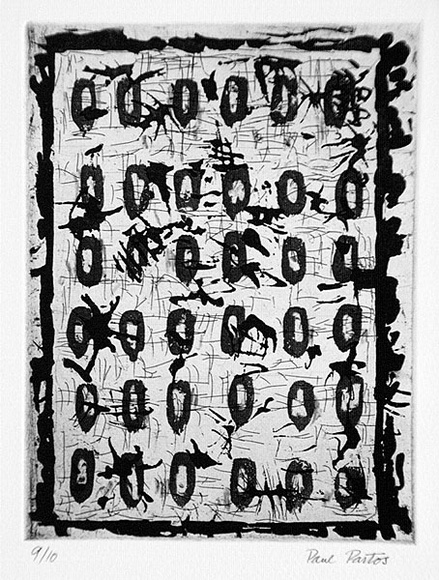 9/10 Paul Partos